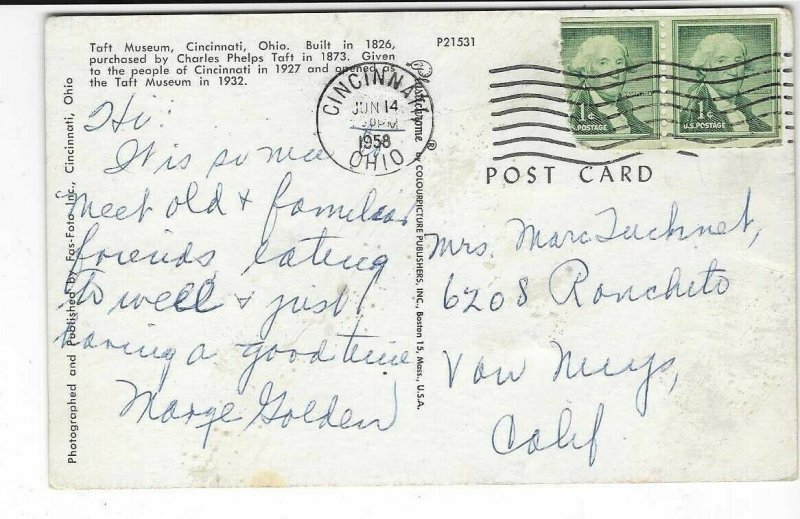 Taft Museum, Cincinnati, Ohio. Built in 1826,
purchased by Charles Phelps Taft in 1873. Given
to the people of Cincinnati in 1927 and opened as
the Taft Museum in 1932.
P21531
CINCINNATI
JUN 14
PM
1958
OHIO
1¢
U.S. POSTAGE
1¢
U.S. POSTAGE
POST CARD
Hi:
It is so nice
meet old & familiar
friends, eating
to well & just
having a good time
Marge Golden
Mrs. Marc
6208 Rancheto
Van Nuys,
Calif
Photographed and Published by Fas-Foto Inc., Cincinnati, Ohio
Plastichrome ® by COLOURPICTURE PUBLISHERS, INC., Boston 15, Mass., U.S.A.